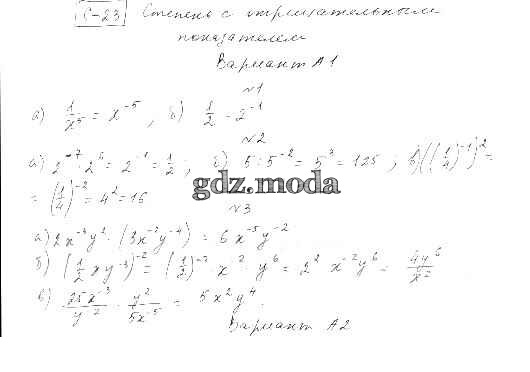 С-23 Степень с отрицательным
показателем
Вариант А1
№1
а) 1/x⁵ = x⁻⁵, б) 1/2 = 2⁻¹
№2
а) 2⁻⁷ · 2⁶ = 2⁻¹ = 1/2; б) 5 : 5⁻² = 5³ = 125; в) ((1/4)⁻¹)² =
= (1/4)⁻² = 4² = 16
gdz.moda
№3
а) 2x⁻³y² · (3x⁻²y⁻⁴) = 6x⁻⁵y⁻²
б) (1/2 xy⁻³)⁻² = (1/2)⁻² x⁻² y⁶ = 2² x⁻²y⁶ = 4y⁶/x²
в) 25x⁻³/y⁻² · y²/5x⁻⁵ = 5x²y⁴.
Вариант А2